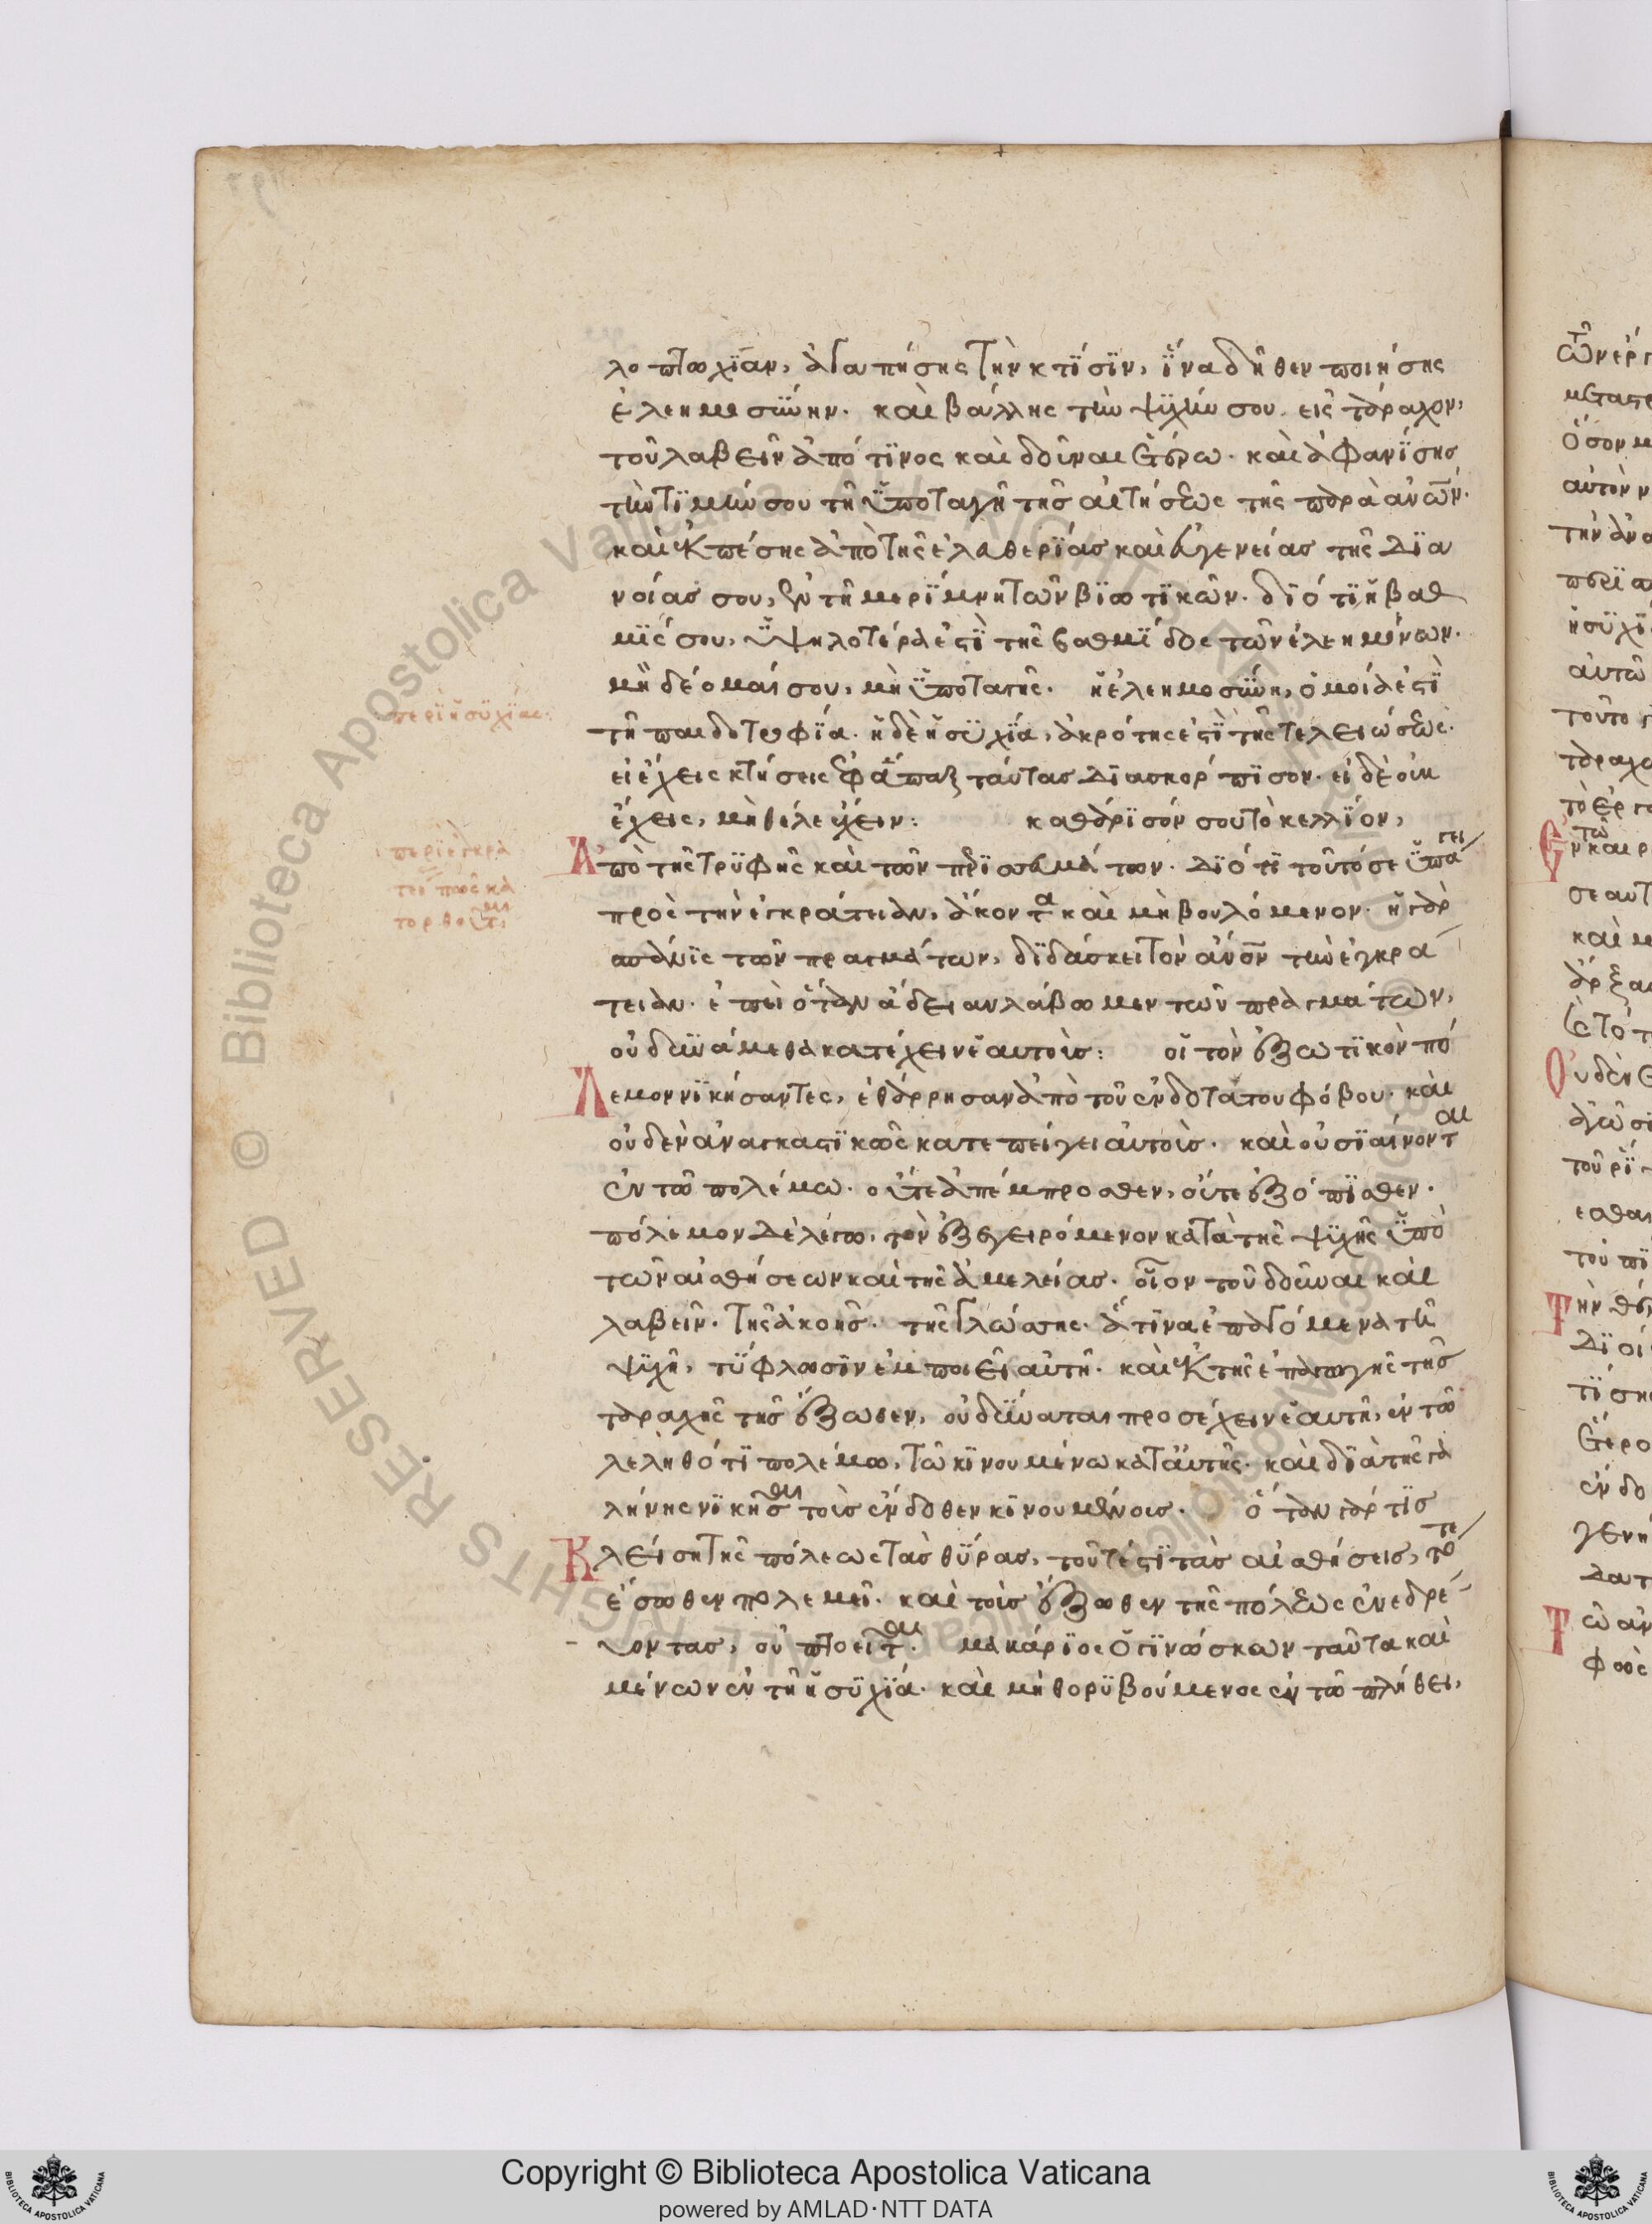 λοπτωχίαν, ἀγαπήσης τὴν κτίσϊν, ἵνα δῆθεν ποιήσης
ἐλεημοσύνην. καὶ βάλλης τὴν ψυχήν σου εἰς τάραχον,
τοῦ λαβεῖν ἀπό τινος καὶ δοῦναι ἑτέρω. καὶ ἀφανίσης
τὴν τϊμήν σου τῆ ὑποταγῆ τῆς αἰτήσεως τῆς παρὰ ἀνων.
καὶ ἐκπέσης ἀπὸ τῆς ἐλευθερίας καὶ εὐγενείας τῆς δϊα
νοίας σου, ἐν τῆ μερίμνη τῶν βϊωτϊκῶν. δϊότϊ ἡ βαθ
μίς σου, ὑψηλοτέρα ἐστὶ τῆς βαθμίδος τῶν ἐλεημόνων.
μὴ δέομαί σου, μὴ ὑποταγῆς. ἡ ἐλεημοσύνη, ὁμοία ἐστὶ
περὶ ἡσυχίας:
τῆ παιδοτροφία. ἡ δὲ ἡσυχία, ἀκρότης ἐστὶ τῆς τελειώσεως.
εἰ ἔχεις κτήσεις ἐφάπαξ ταύτας δϊασκόρπϊσον. εἰ δὲ οὐκ
ἔχεις, μὴ θέλε ἔχειν: καθάρϊσόν σου τὸ κελλίον,
περὶ ἐγκρα
τεί πῶς κα
τορθοῦται
Ἀπὸ τῆς τρυφῆς καὶ τῶν περϊσσευμάτων. δϊότϊ τοῦτό σε ὑπάγει
πρὸς τὴν ἐγκράτειαν, ἄκοντα καὶ μὴ βουλόμενον. ἡ γὰρ
σπάνϊς τῶν πραγμάτων, δϊδάσκει τὸν ἄνον τὴν ἐγκρά
τειαν. ἐπεὶ ὅταν ἄδειαν λάβωμεν τῶν πραγμάτων,
οὐ δυνάμεθα κατέχειν ἑαυτοῖς: οἱ τὸν ἐξωτϊκὸν πό
Λεμον νϊκήσαντες, ἐθάρρησαν ἀπὸ τοῦ ἐνδοτάτου φόβου. καὶ
οὐδὲν ἀναγκαστϊκῶς κατεπείγει αὐτοῖς. καὶ οὐ σϊαίνονται
ἐν τῶ πολέμω. οὔτε ἀπέμπροσθεν, οὔτε ἐξόπϊσθεν.
πόλεμον δὲ λέγω, τὸν ἐξεγειρόμενον κατὰ τῆς ψυχῆς ὑπὸ
τῶν αἰσθήσεων καὶ τῆς ἀμελείας. οἷον τοῦ δοῦναι καὶ
λαβεῖν. τῆς ἀκοῆς. τῆς γλώσσης. ἅτϊνα ἐπαγόμενα τῆ
ψυχῆ, τύφλωσϊν ἐμποιεῖ αὐτῆ. καὶ ἐκ τῆς ἐπαγωγῆς τῆς
ταραχῆς τῆς ἔξωθεν, οὐ δύναται προσέχειν ἑαυτῆ, ἐν τῶ
λεληθότϊ πολέμω, τῶ κϊνουμένω κατ' αὐτῆς. καὶ δϊὰ τῆς γα
λήνης νϊκῆσαι τοῖς ἔνδοθεν κϊνουμένοις. ὅταν γάρ τϊς
Κλείση τῆς πόλεως τὰς θύρας, τοῦτέστϊ τὰς αἰσθήσεις, τότε
ἔσωθεν πολεμεῖ. καὶ τοῖς ἔξωθεν τῆς πόλεως ἐνεδρεύ
οντας, οὐ πτοεῖται. μακάρϊος ὁ γϊνώσκων ταῦτα καὶ
μένων ἐν τῆ ἡσυχία. καὶ μὴ θορυβούμενος ἐν τῶ πλήθει,